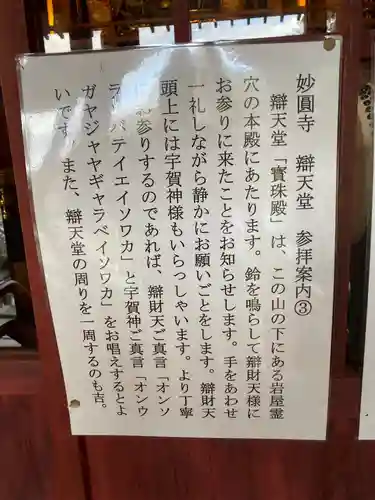 妙圓寺 辯天堂 参拝案内③
辯天堂「寳珠殿」は、この山の下にある岩屋霊
穴の本殿にあたります。鈴を鳴らして辯財天様に
お参りに来たことをお知らせします。手をあわせ
一礼しながら静かにお願いごとをします。辯財天
頭上には宇賀神様もいらっしゃいます。より丁寧
にお参りするのであれば、辯財天ご真言「オンソ
ラバテイエイソワカ」と宇賀神ご真言「オンウ
ガヤジャヤギャラベイソワカ」をお唱えするとよ
いです。また、辯天堂の周りを一周するのも吉。